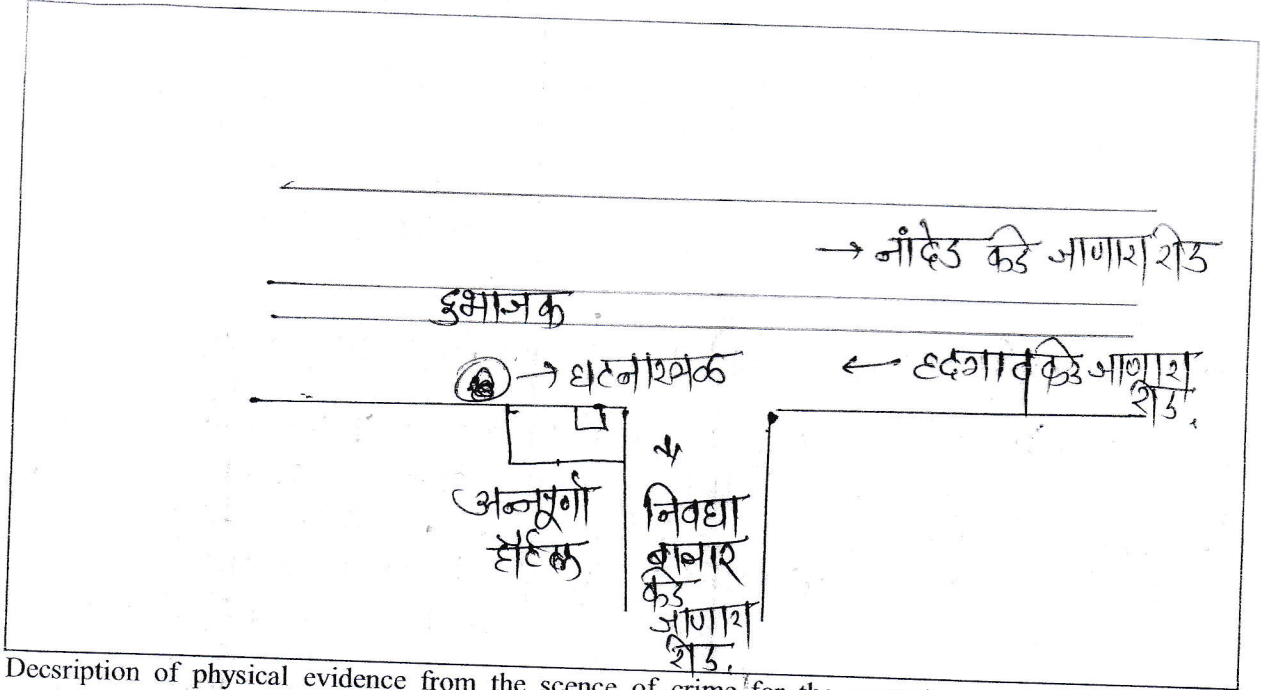 → नांदेड कडे जाणारा रोड
दुभाजक
→ घटनास्थळ
← हदगाव कडे जाणारा
रोड.
अन्नपूर्णा
हॉटेल
निवघा
बाजार
कडे
जाणारा
रोड.
Decsription of physical evidence from the scence of crime for the